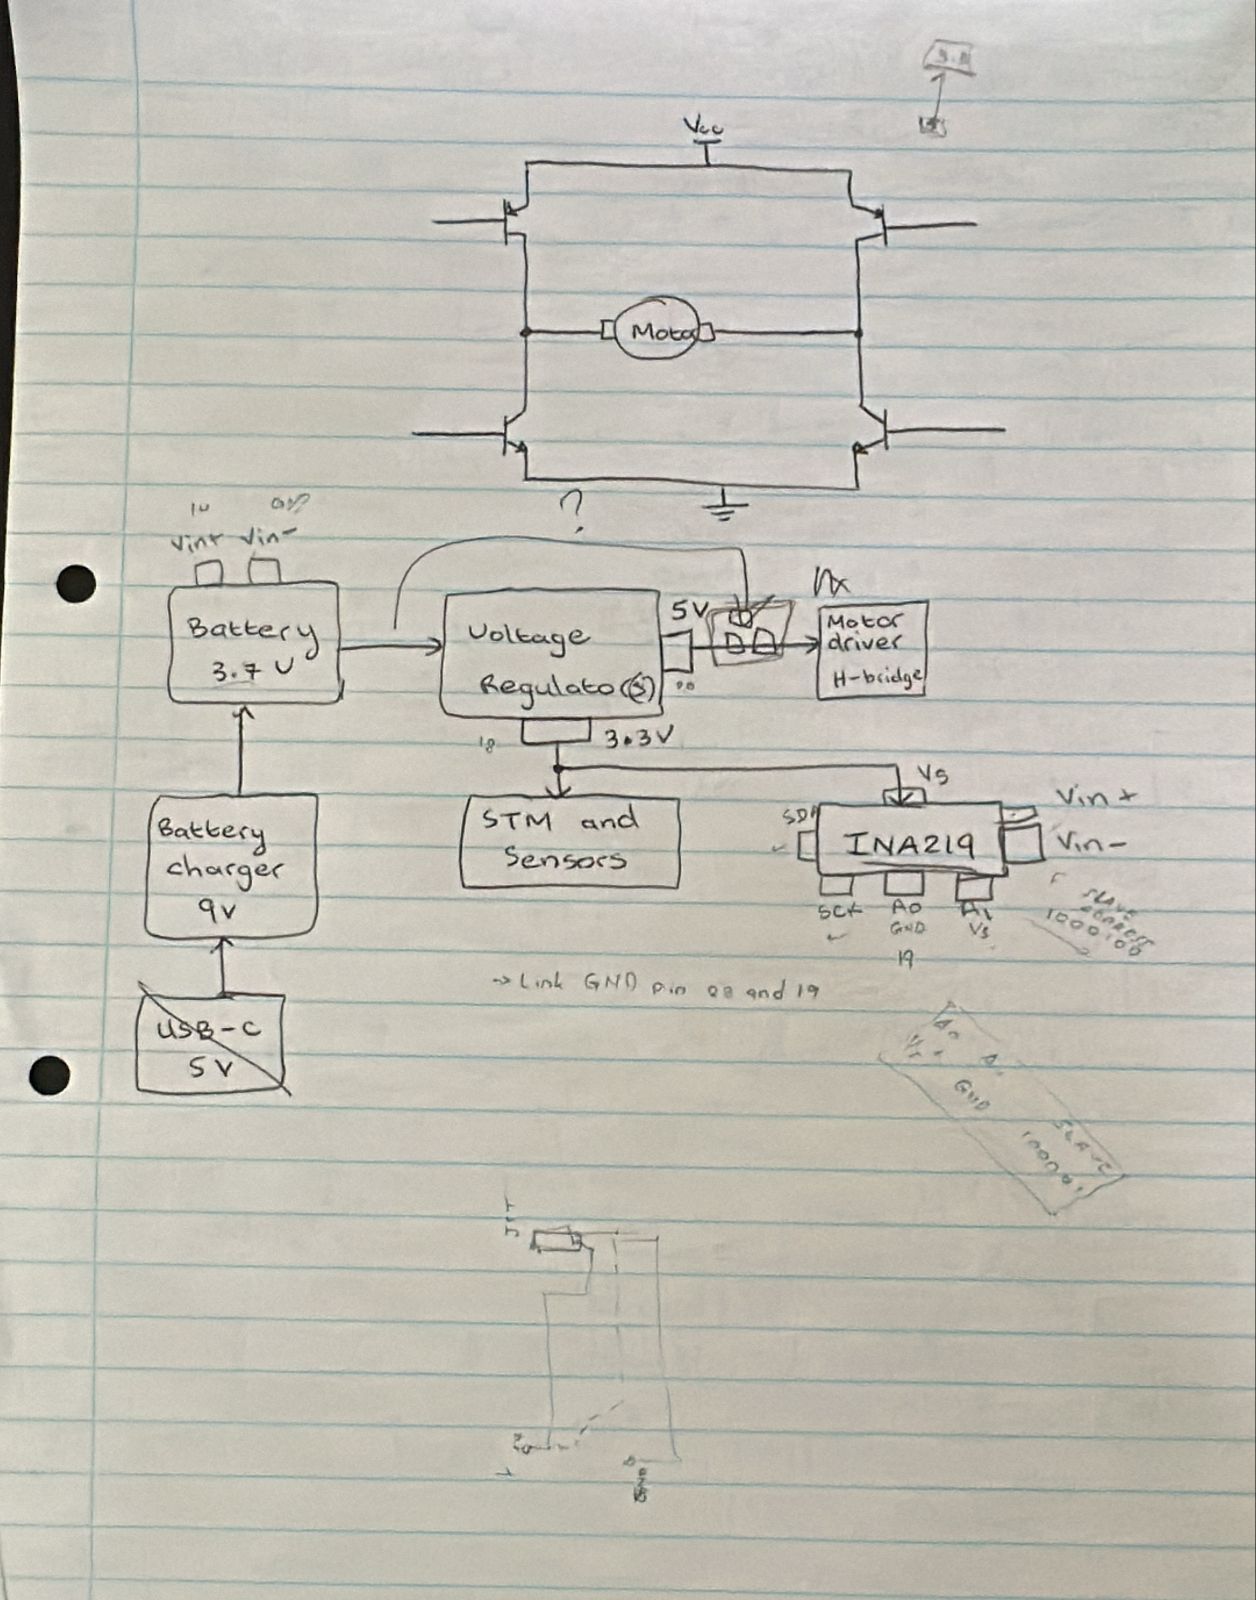 Vcc
Motor
?
Vin+ Vin-
Battery
3.7 V
Voltage
Regulator(s)
5V
Motor
driver
H-bridge
18
3.3V
Battery
charger
9V
STM and
Sensors
Vs
SDA
INA219
Vin+
Vin-
SCK A0 A1
GND Vs
19
SLAVE
ADDRESS
1000100
→ Link GND pin 20 and 19
USB-C
5V
GND
SLAVE